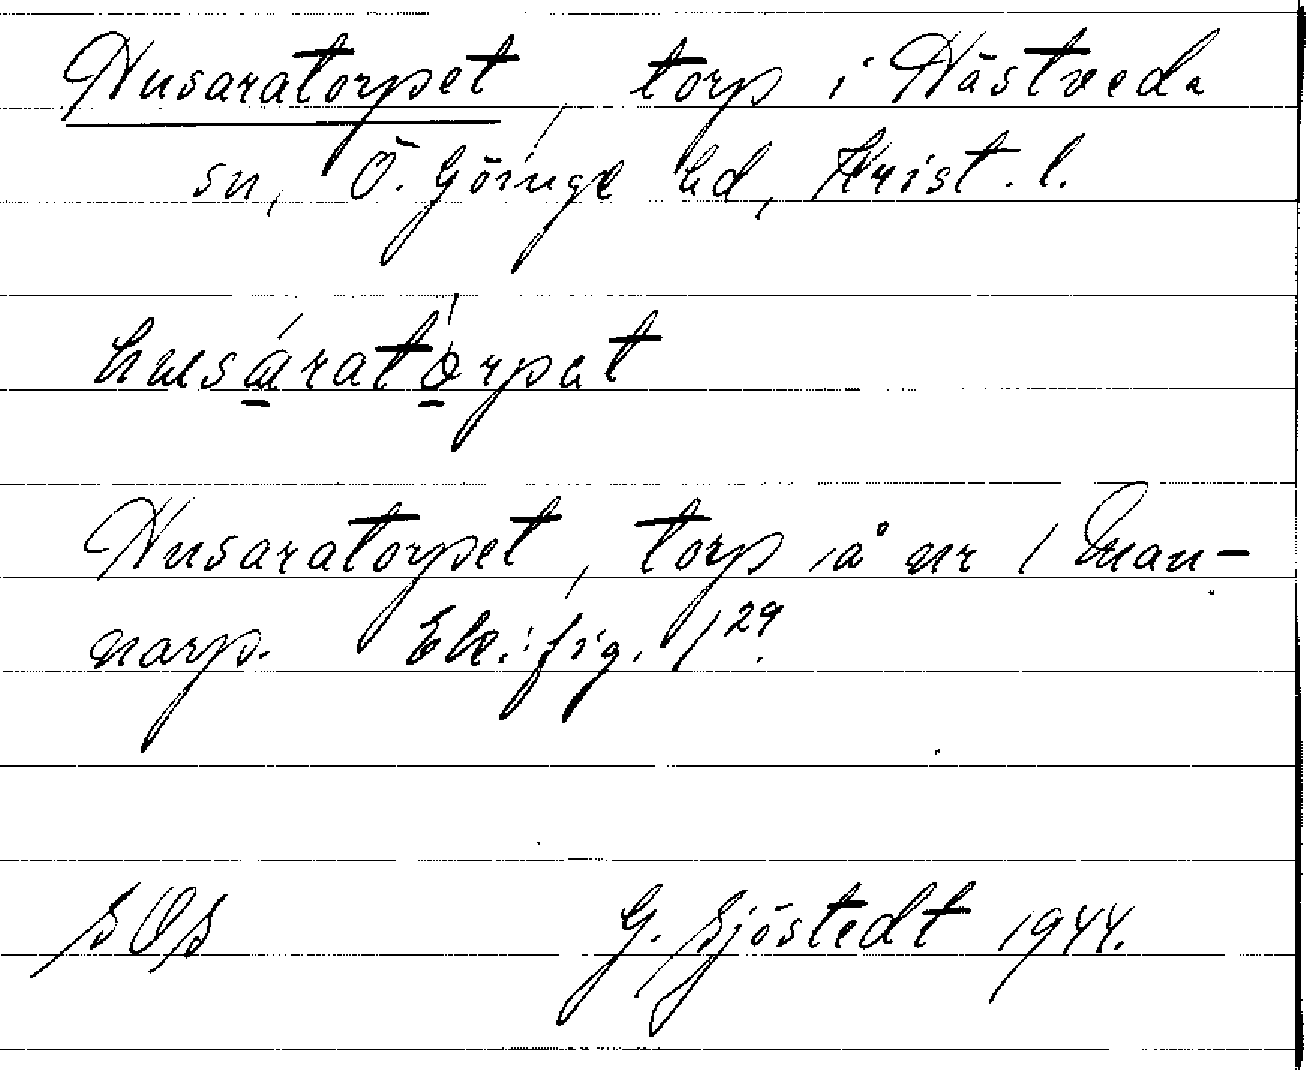 Husaratorpet, torp i Hästveda
sn, Ö. Göinge hd, Krist. l.
husáratórpat
Husaratorpet, torp å nr 1 Man-
narp. Ek. fig. 129.
SOS G. Sjöstedt 1944.